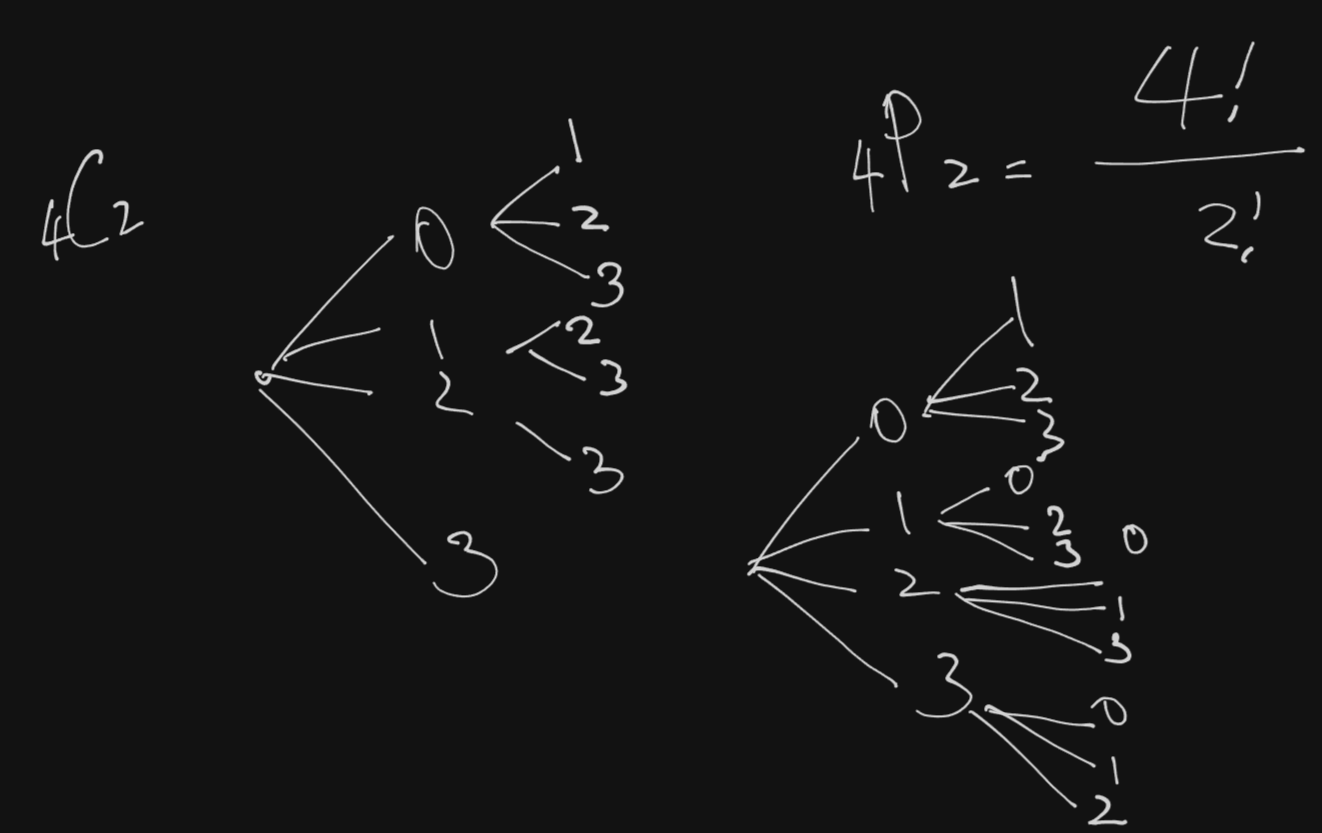 4C2
0
1
2
3
1
2
3
2
3
3
4P2 = 4!/2!
0
1
2
3
1
0
2
3
2
0
1
3
3
0
1
2